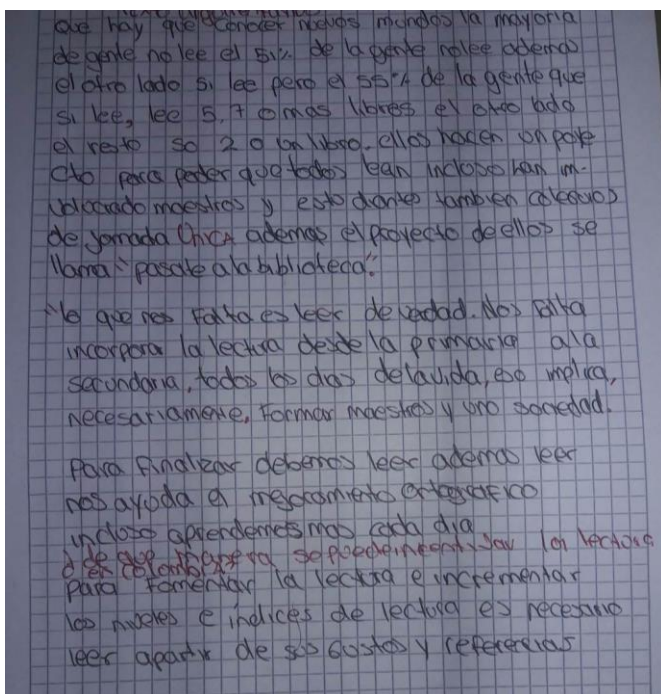 que hay que conocer nuevos mundos la mayoria
de gente no lee el 51% de la gente nolee ademas
el otro lado si lee pero el 55% de la gente que
si lee, lee 5,7 o mas libros el otro lado
el resto so 2 o un libro. ellos hacen un poye
cto para poder que todos lean incluso han in-
volucrado maestros y estodiantes tambien colegios
de jornada Unica ademas el proyecto de ellos se
llama "pasate ala biblioteca".
"lo que nos Falta es leer de verdad. Nos Falta
incorpora la lectura desde la primaria ala
secundaria, todos los dias delavida, eso implica,
necesariamente, Formar maestros y una sociedad.
Para Finalizar debemos leer ademas leer
nos ayuda a mejoramiento ortografico
incluso aprendemos mas cada dia
d de que manera se puede incentivar la lectura
en colombia
Para Fomentar la lectura e incrementar
los niveles e indices de lectura es necesario
leer apartir de sus Gustos y referencias